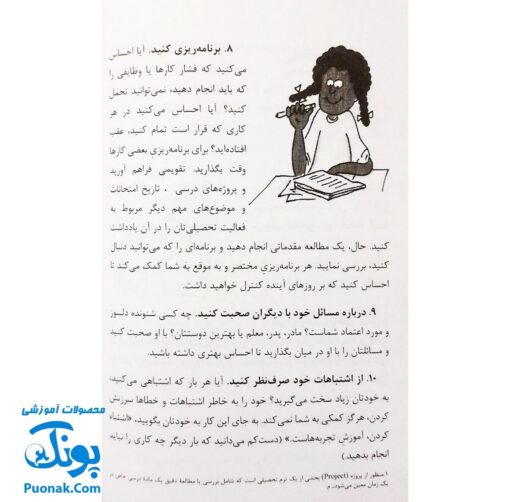 ۸. برنامه‌ریزی کنید. آیا احساس
می‌کنید که فشار کارها یا وظایفی را
که باید انجام دهید، نمی‌توانید تحمل
کنید؟ آیا احساس می‌کنید در هر
کاری که قرار است تمام کنید، عقب
افتاده‌اید؟ برای برنامه‌ریزی بعضی کارها
وقت بگذارید. تقویمی فراهم آورید
و پروژه‌های درسی ، تاریخ امتحانات
و موضوع‌های مهم دیگر مربوط به
فعالیت تحصیلی‌تان را در آن یادداشت
کنید. حال، یک مطالعه مقدماتی انجام دهید و برنامه‌ای را که می‌توانید دنبال
کنید، بررسی نمایید. هر برنامه‌ریزیِ مختصر و به موقع به شما کمک می‌کند تا
احساس کنید که بر روزهای آینده کنترل خواهید داشت.
۹. درباره مسائل خود با دیگران صحبت کنید. چه کسی شنونده دلسوز
و مورد اعتماد شماست؟ مادر، پدر، معلم یا بهترین دوستتان؟ با او صحبت کنید
و مسائلتان را با او در میان بگذارید تا احساس بهتری داشته باشید.
۱۰. از اشتباهات خود صرف‌نظر کنید. آیا هر بار که اشتباهی می‌کنید،
به خودتان زیاد سخت می‌گیرید؟ خود را به خاطر اشتباهات و خطاها سرزنش
کردن، هرگز کمکی به شما نمی‌کند. به جای این کار به خودتان بگویید، «اشتباه
کردن، آموزش تجربه‌هاست.» (دست‌کم می‌دانید که بار دیگر چه کاری را نباید
انجام بدهید.)
۱ منظور از پروژه (Project) بخشی از یک ترم تحصیلی است که شامل بررسی یا مطالعهٔ دقیق یک مادهٔ درسی خاص در
یک زمان معین می‌شود. م.
محصولات آموزشی
پونک
Puonak.Com